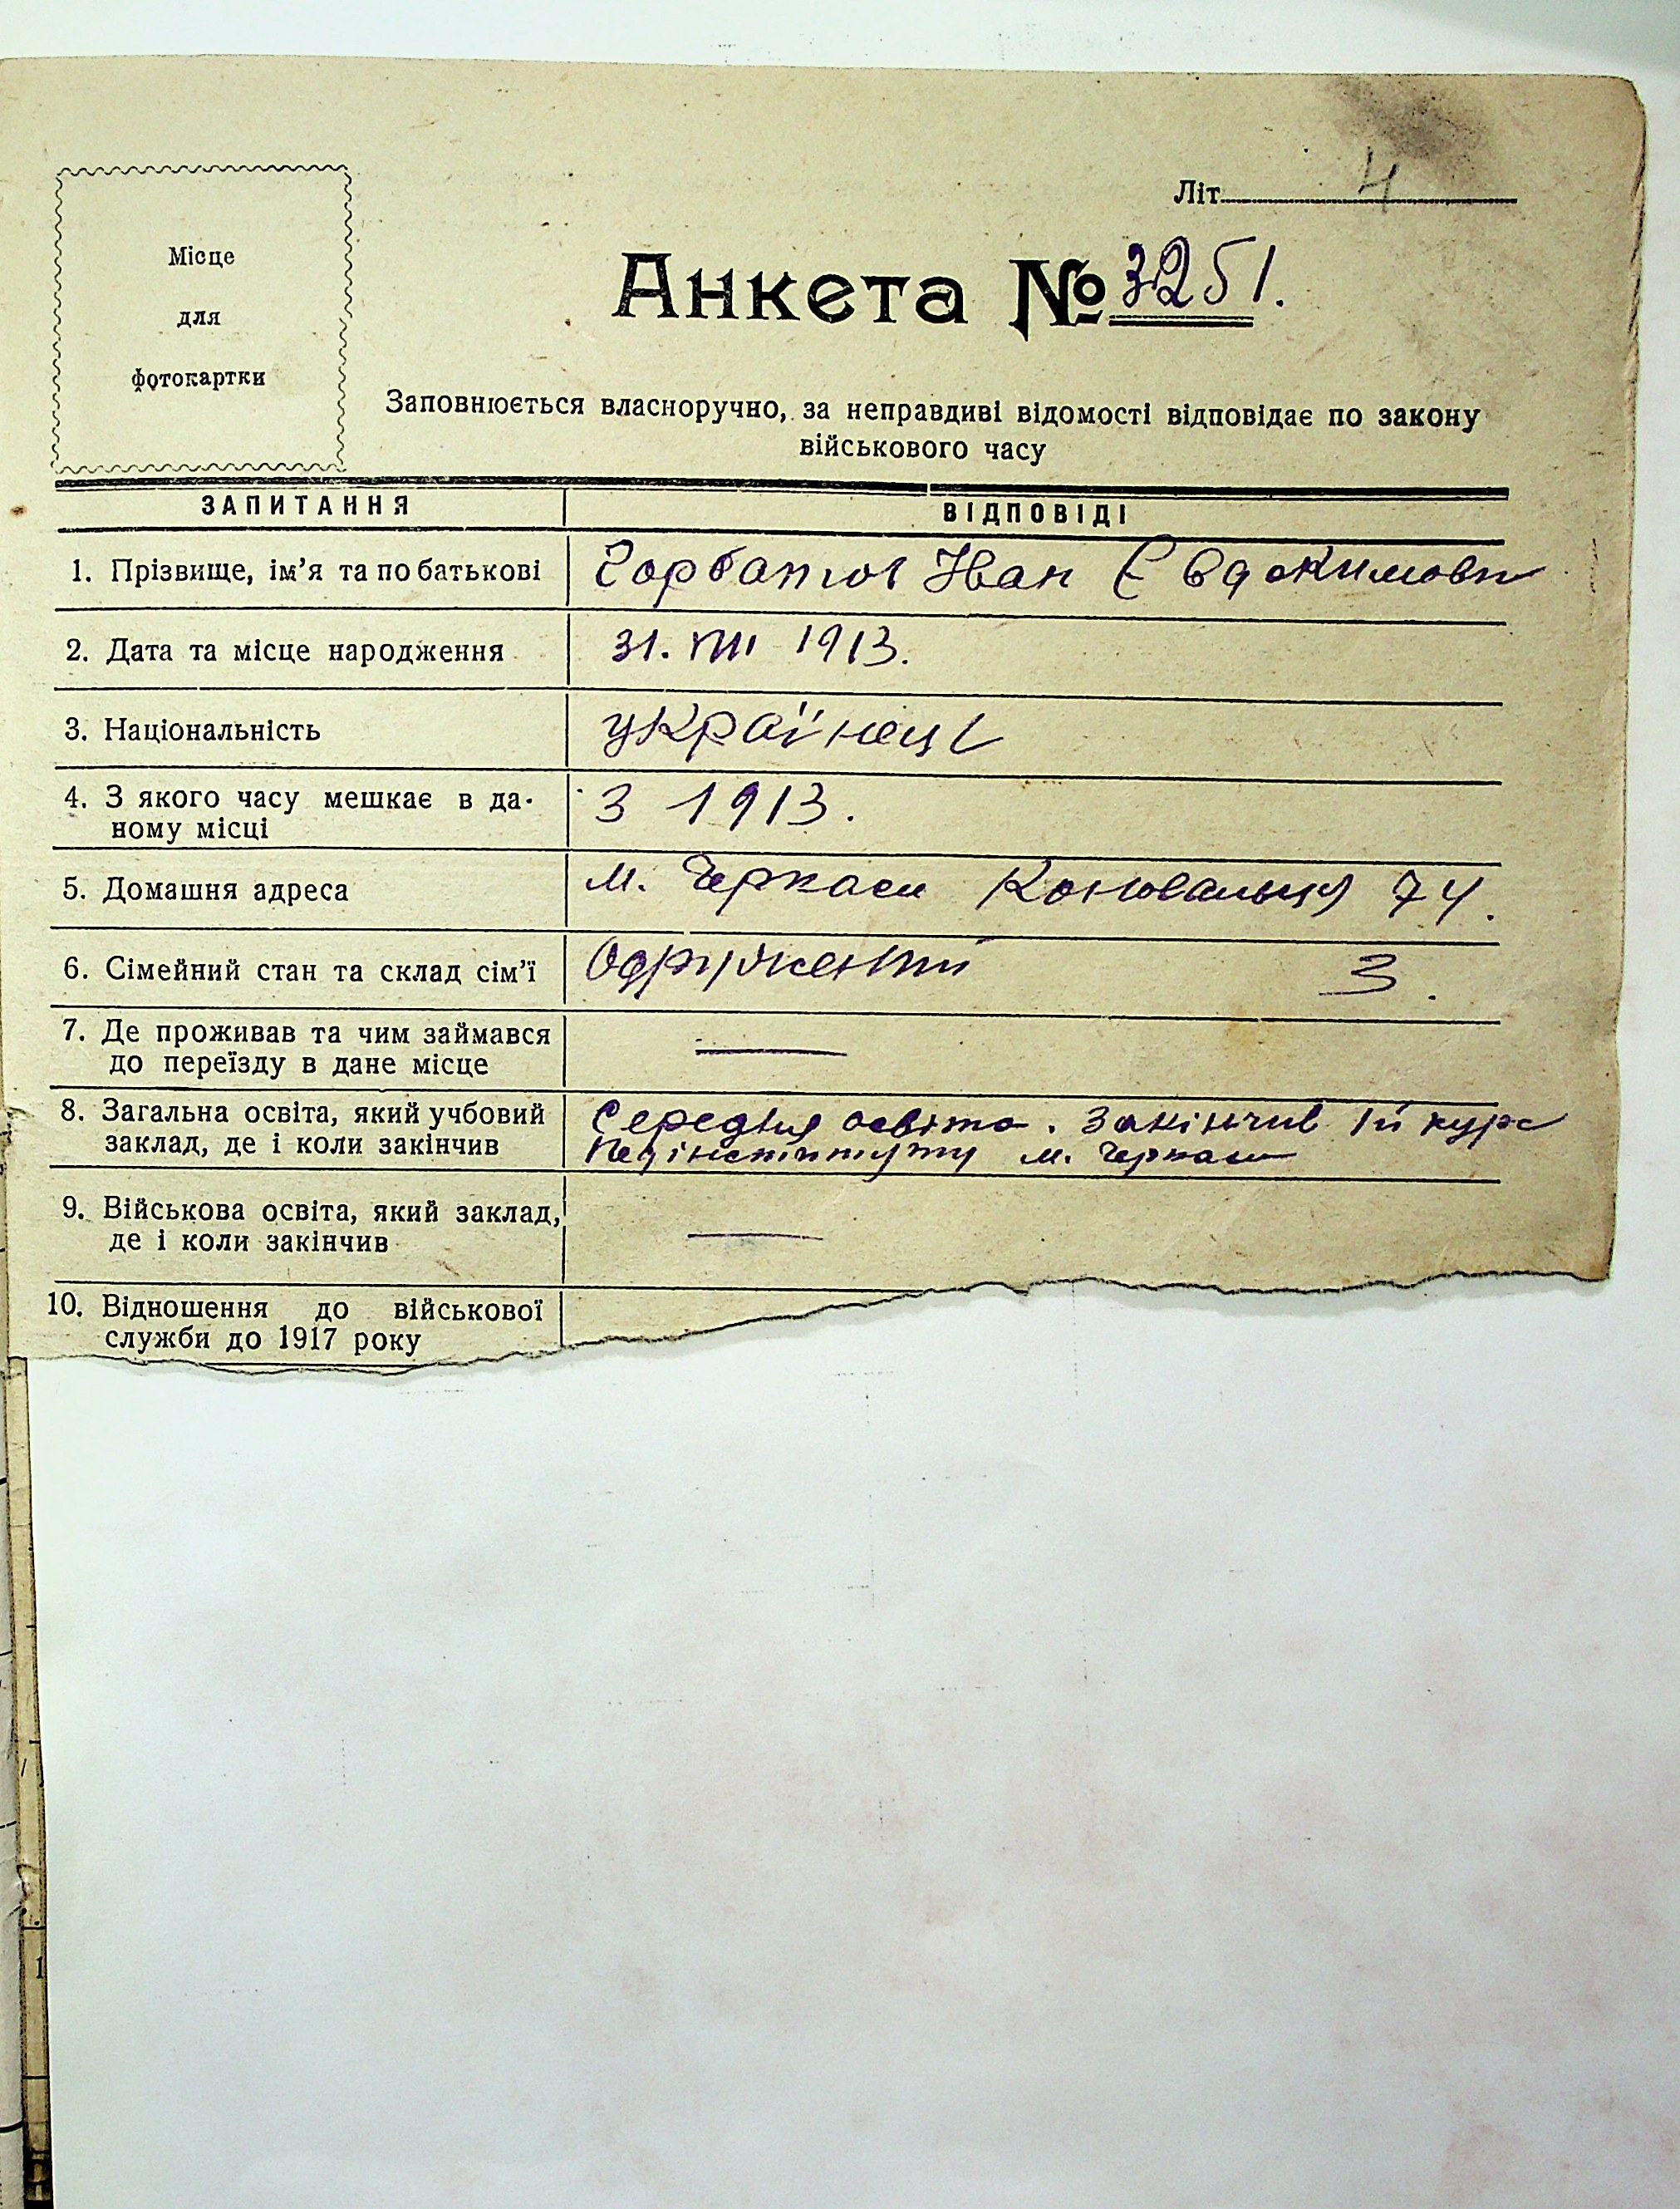 Місце
для
фотокартки
Літ. 4
Анкета № 3251.
Заповнюється власноручно, за неправдиві відомості відповідає по закону
військового часу
ЗАПИТАННЯ ВІДПОВІДІ
1. Прізвище, ім'я та по батькові Горбатюк Іван Євдокимови
2. Дата та місце народження 31. VIII 1913.
3. Національність українець
4. З якого часу мешкає в да-
ному місці З 1913.
5. Домашня адреса м. Черкаси Коновальця 74.
6. Сімейний стан та склад сім'ї Одружений 3.
7. Де проживав та чим займався
до переїзду в дане місце —
8. Загальна освіта, який учбовий Середня освіта. Закінчив Iй курс
заклад, де і коли закінчив Педінституту м. Черкаси
9. Військова освіта, який заклад,
де і коли закінчив —
10. Відношення до військової
служби до 1917 року